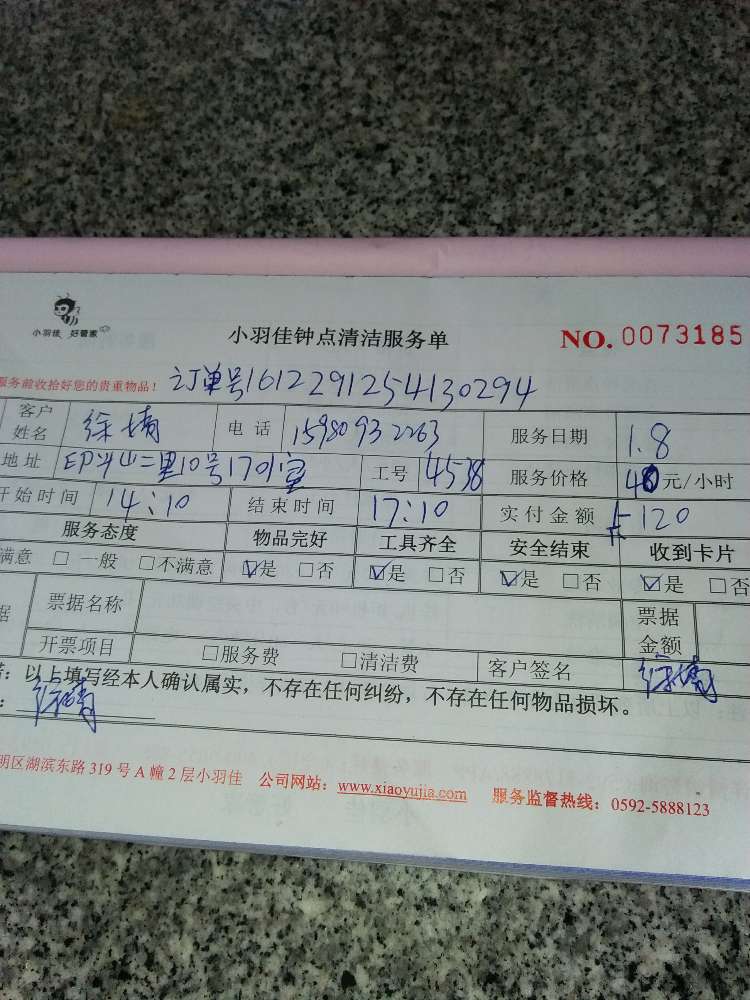 小羽佳 好管家
小羽佳钟点清洁服务单
NO. 0073185
服务前收拾好您的贵重物品! 订单号16122912541 30294
客户姓名 徐婧 电话 15980932263 服务日期 1.8
地址 印斗山二里10号1701室 工号 4538 服务价格 40元/小时
开始时间 14:10 结束时间 17:10 实付金额 卡120
服务态度 物品完好 工具齐全 安全结束 收到卡片
满意 □ 一般 □不满意 ☑是 □否 ☑是 □否 ☑是 □否 ☑是 □否
据 票据名称 票据金额
开票项目 □服务费 □清洁费 客户签名 徐婧
:以上填写经本人确认属实,不存在任何纠纷,不存在任何物品损坏。
: 徐婧
明区湖滨东路 319 号 A 幢 2 层小羽佳 公司网站:www.xiaoyujia.com 服务监督热线:0592-5888123